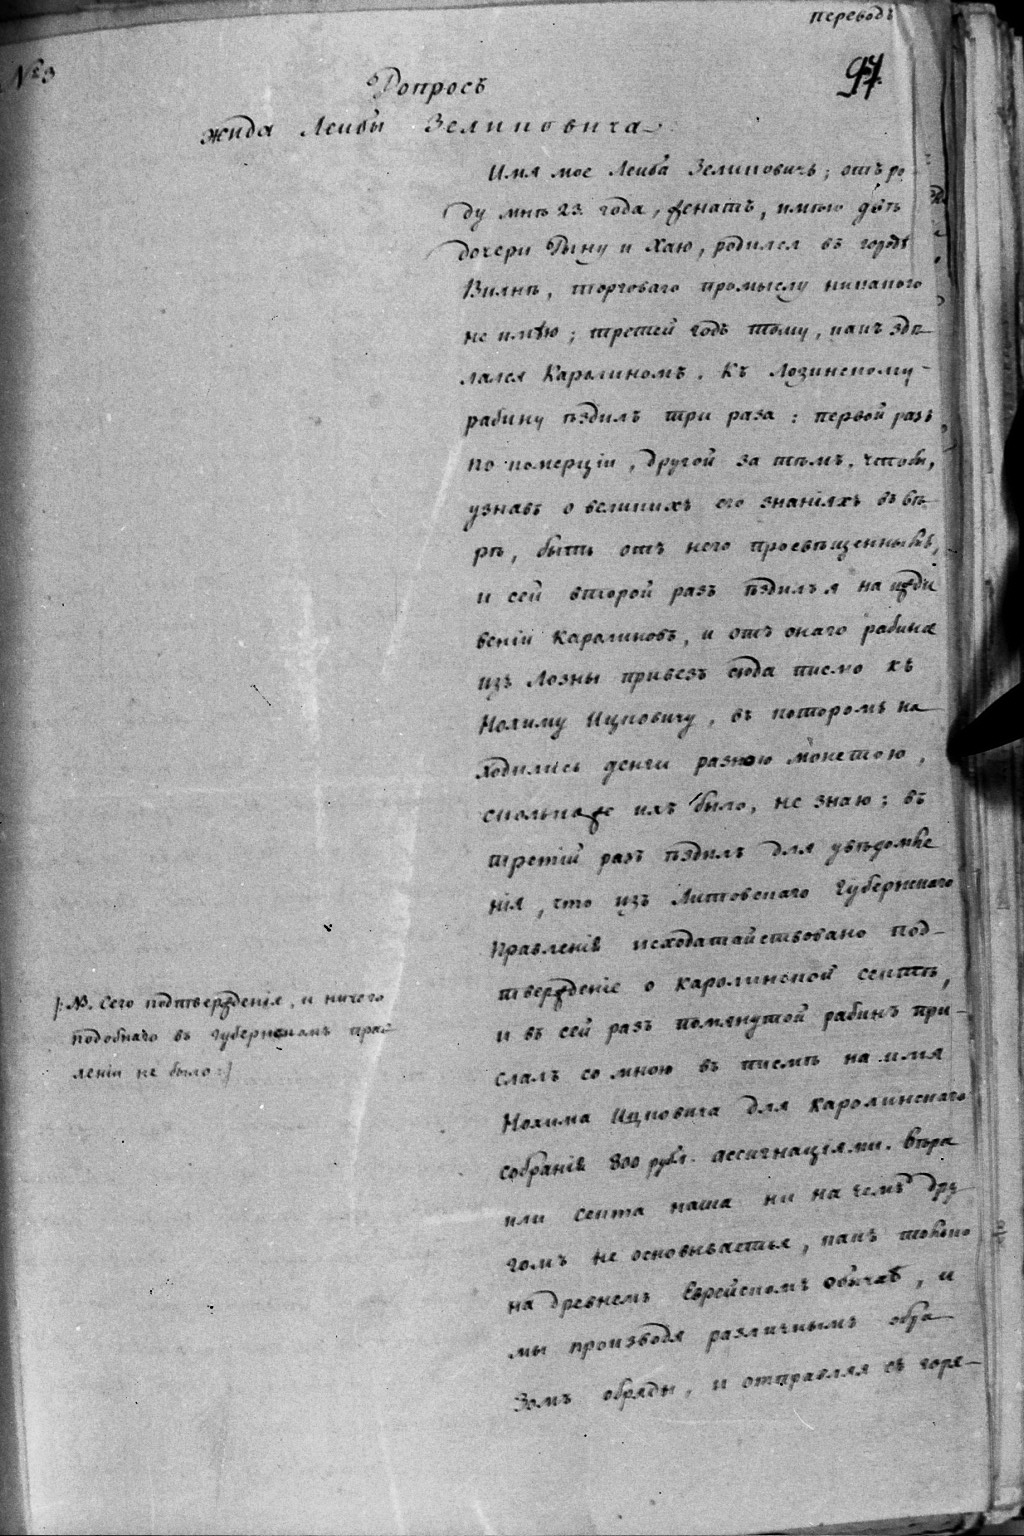 переводъ
№ 3
97.
Допросъ
жида Леибы Зелиповича.
Имя мое Леиба Зелиповичъ; отъ ро-
ду мнѣ 23. года, женатъ, имѣю двѣ
дочери Рыну и Хаю, родился въ городѣ
Вилнѣ, торговаго промыслу никакого
не имѣю; третей годъ тому, какъ здѣ-
лался Каролиномъ. Къ Лозинскому
рабину ѣздилъ три раза: первой разъ
по комерціи, другой за тѣмъ, чтобы,
узнавъ о великихъ его знаніяхъ въ вѣ-
рѣ, быть отъ него просвѣщеннымъ,
и сей второй разъ ѣздилъ я на ижди
веніи Каролиновъ, и отъ онаго рабина
изъ Лозны привезъ сюда писмо къ
Нохиму Ицковичу, въ которомъ на
ходились денги разною монетою,
сколькоже ихъ было, не знаю; въ
третій разъ ѣздилъ для увѣдомле
нія, что изъ Литовскаго Губернскаго
Правленія исходатайствовано под-
твержденіе о Каролинской сектѣ,
и въ сей разъ помянутой рабинъ при-
слалъ со мною въ писмѣ на имя
Нохима Ицковича для Каролинскаго
собранія 800 рубл. ассигнаціями. Вѣра
или секта наша ни на чемъ дру
гомъ не основывается, какъ токмо
на древнемъ Еврейскомъ обычаѣ, и
мы производя различнымъ обра
зомъ обряды, и отправляя съ горя-
/: NB. Сего подтвержденія, и ничего
подобнаго въ губернскомъ прав
леніи не было :/